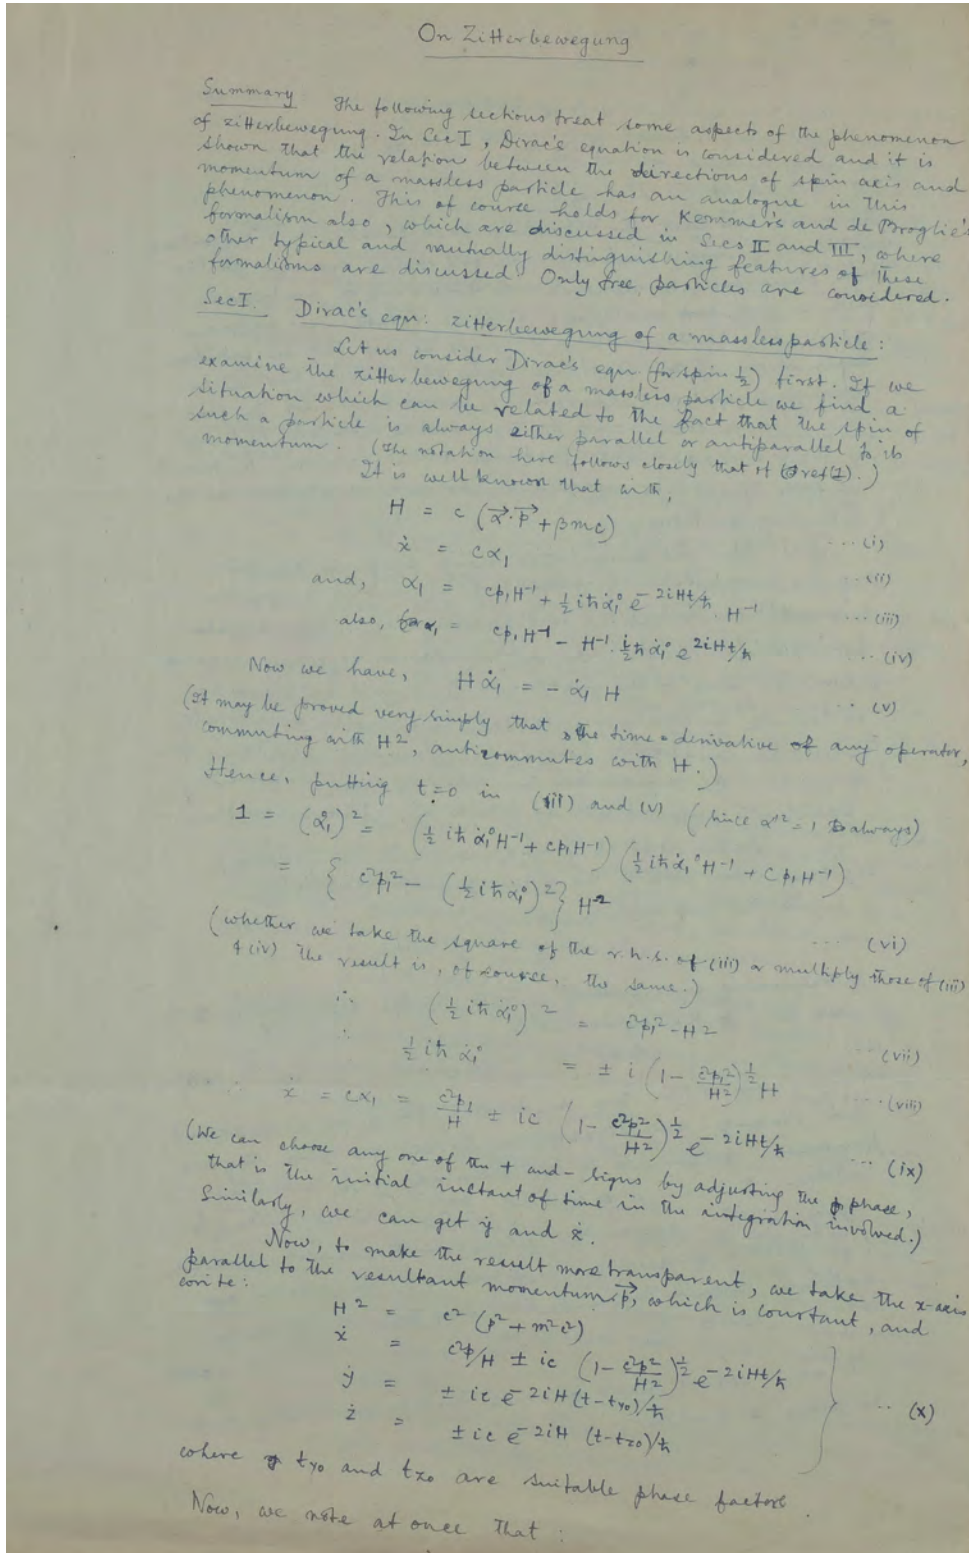 On Zitterbewegung
Summary The following sections treat some aspects of the phenomenon
of zitterbewegung. In Sec I, Dirac's equation is considered and it is
shown that the relation between the directions of spin axis and
momentum of a massless particle has an analogue in this
phenomenon. This of course holds for Kemmer's and de Broglie's
formalism also, which are discussed in Secs II and III, where
other typical and mutually distinguishing features of these
formalisms are discussed. Only free particles are considered.
Sec I. Dirac's eqn: zitterbewegung of a massless particle:
Let us consider Dirac's eqn. (for spin ½) first. If we
examine the zitterbewegung of a massless particle we find a
situation which can be related to the fact that the spin of
such a particle is always either parallel or antiparallel to its
momentum. (The notation here follows closely that of ref(1).)
It is well known that with,
H = c (α⃗·p⃗ + βmc) ...(i)
ẋ = cα₁ ...(ii)
and, α₁ = cp₁H⁻¹ + ½iħα̇₁⁰ e^-2iHt/ħ. H⁻¹ ...(iii)
also, α₁ = cp₁H⁻¹ - H⁻¹. ½iħα̇₁⁰ e^2iHt/ħ ...(iv)
Now we have, Hα̇₁ = - α̇₁ H ...(v)
(It may be proved very simply that the time-derivative of any operator,
commuting with H², anticommutes with H.)
Hence, putting t=0 in (iii) and (v) (since α₁² = 1 always)
1 = (α₁⁰)² = (½iħα̇₁⁰H⁻¹ + cp₁H⁻¹) (½iħα̇₁⁰H⁻¹ + cp₁H⁻¹)
= {c²p₁² - (½iħα̇₁⁰)²} H⁻² ... (vi)
(whether we take the square of the r.h.s. of (iii) or multiply those of (iii)
& (iv) the result is, of course, the same.)
∴ (½iħα̇₁⁰)² = c²p₁² - H² ...(vii)
∴ ½iħα̇₁⁰ = ± i (1 - c²p₁²/H²)^½ H ...(viii)
∴ ẋ = cα₁ = c²p₁/H ± ic (1 - c²p₁²/H²)^½ e^-2iHt/ħ ...(ix)
(We can choose any one of the + and - signs by adjusting the phase,
that is the initial instant of time in the integration involved.)
Similarly, we can get ẏ and ż.
Now, to make the result more transparent, we take the x-axis
parallel to the resultant momentum p⃗, which is constant, and
write:
H² = c² (p² + m²c²)
ẋ = c²p/H ± ic (1 - c²p²/H²)^½ e^-2iHt/ħ
ẏ = ± ic e^-2iH(t-t_y0)/ħ ...(x)
ż = ± ic e^-2iH (t-t_z0)/ħ
where t_y0 and t_z0 are suitable phase factors
Now, we note at once that: